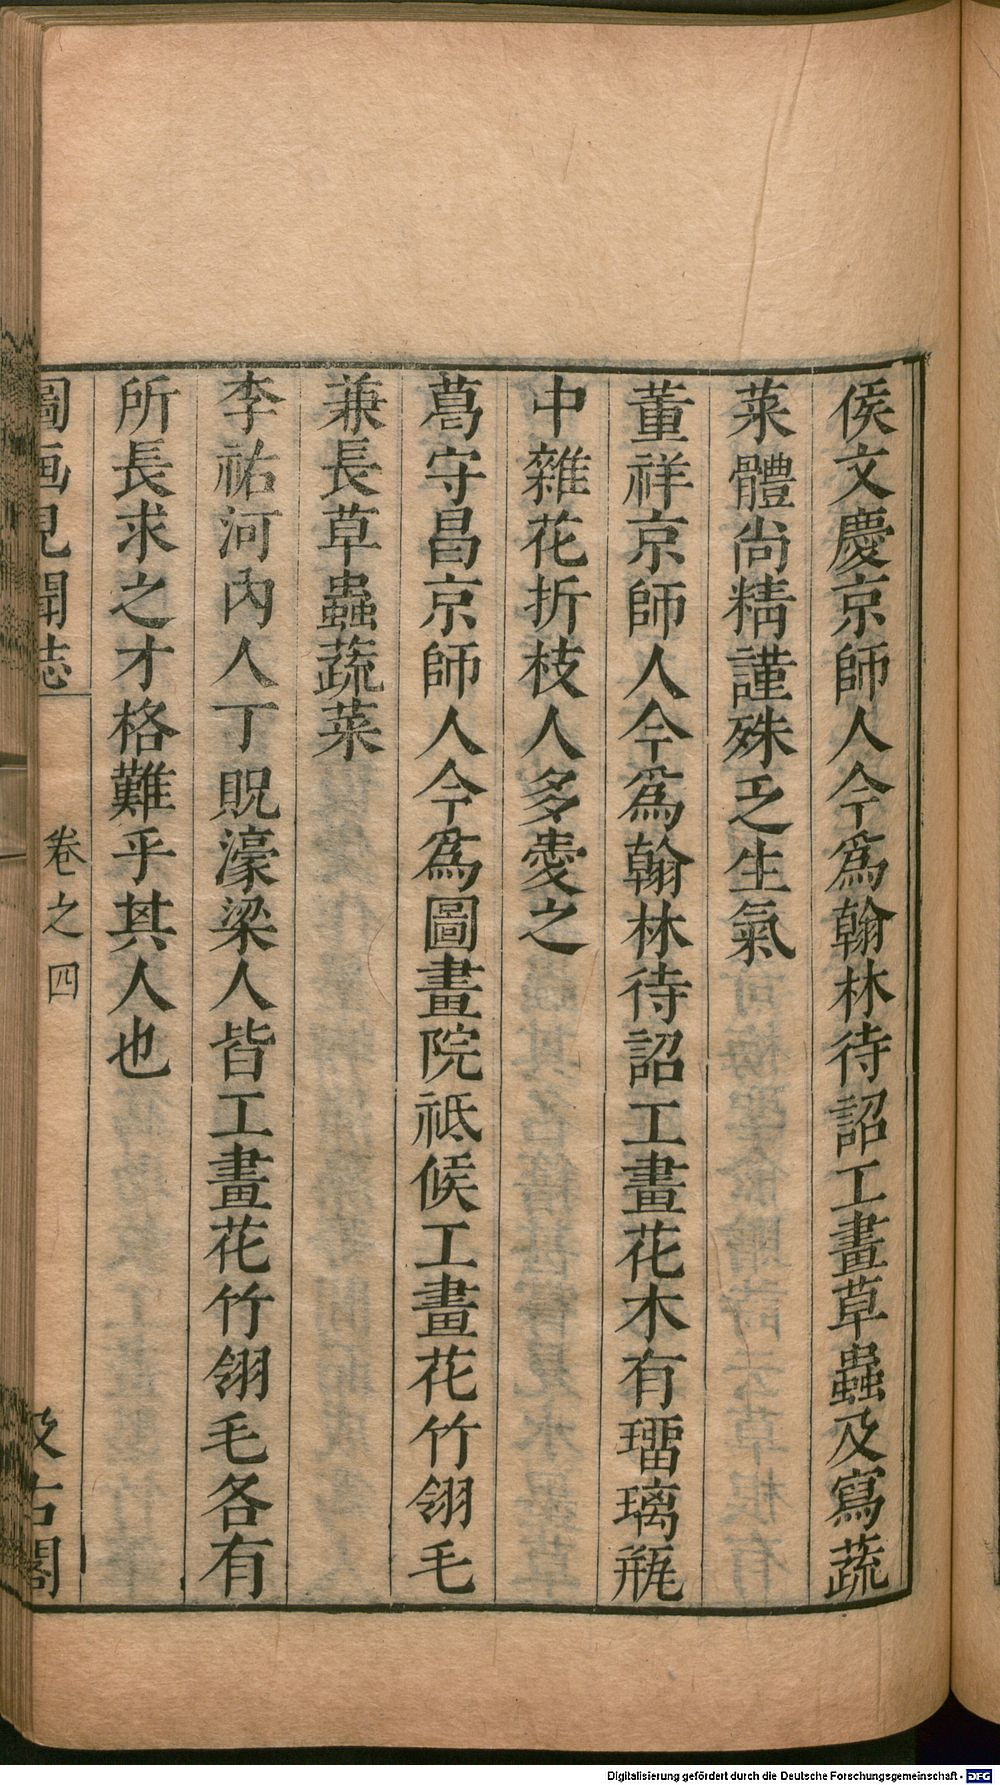 侯文慶京師人今爲翰林待詔工畫草蟲及寫蔬
菜體尚精謹殊乏生氣
董祥京師人今爲翰林待詔工畫花木有瑠璃瓶
中雜花折枝人多愛之
葛守昌京師人今爲圖畫院祗候工畫花竹翎毛
兼長草蟲蔬菜
李祐河內人丁貺濠梁人皆工畫花竹翎毛各有
所長求之才格難乎其人也
圖画見聞志 卷之四 汲古閣
Digitalisierung gefördert durch die Deutsche Forschungsgemeinschaft - DFG